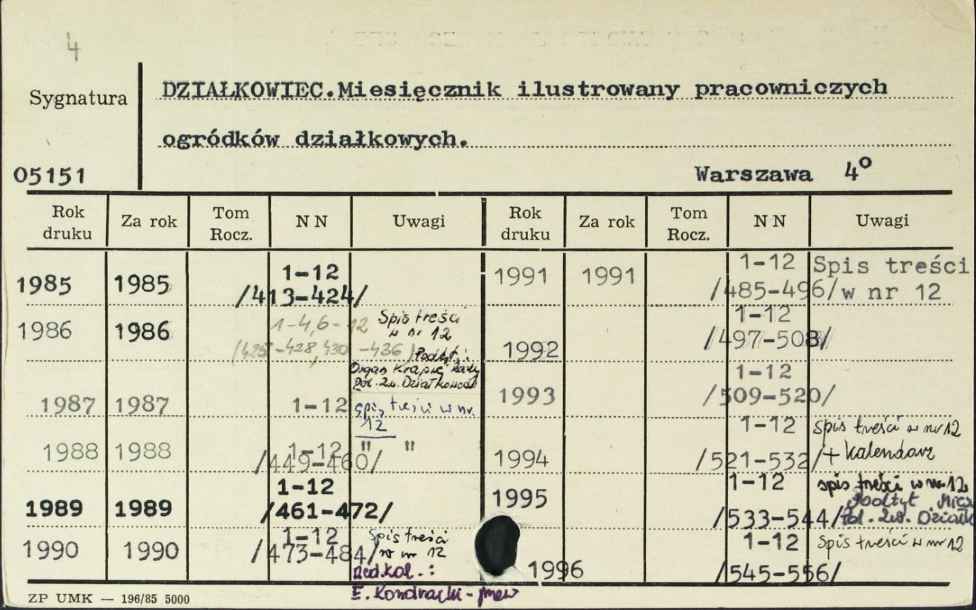 4
Sygnatura
DZIAŁKOWIEC.Miesięcznik ilustrowany pracowniczych
ogródków działkowych.
05151
Warszawa 4°
Rok druku Za rok Tom Rocz. NN Uwagi Rok druku Za rok Tom Rocz. NN Uwagi
1985 1985 1-12 /413-424/
1986 1986 1-4,6-12 /425-428,430-436/ Spis treści w nr 12 Podtyt.: Organ Krajowej Rady Pol. Zw. Działkowców
1987 1987 1-12 spis treści w nr. 12
1988 1988 1-12 /449-460/ " "
1989 1989 1-12 /461-472/
1990 1990 1-12 /473-484/ spis treści w nr 12
Red.kol.:
1991 1991 1-12 /485-496/ Spis treści w nr 12
1992 1-12 /497-508/
1993 1-12 /509-520/
1994 1-12 /521-532/ spis treści w nr 12 + kalendarz
1995 1-12 /533-544/ spis treści w nr 12 Podtyt Pol. Zw.
1996 1-12 /545-556/ Spis treści w nr 12
ZP UMK — 196/85 5000